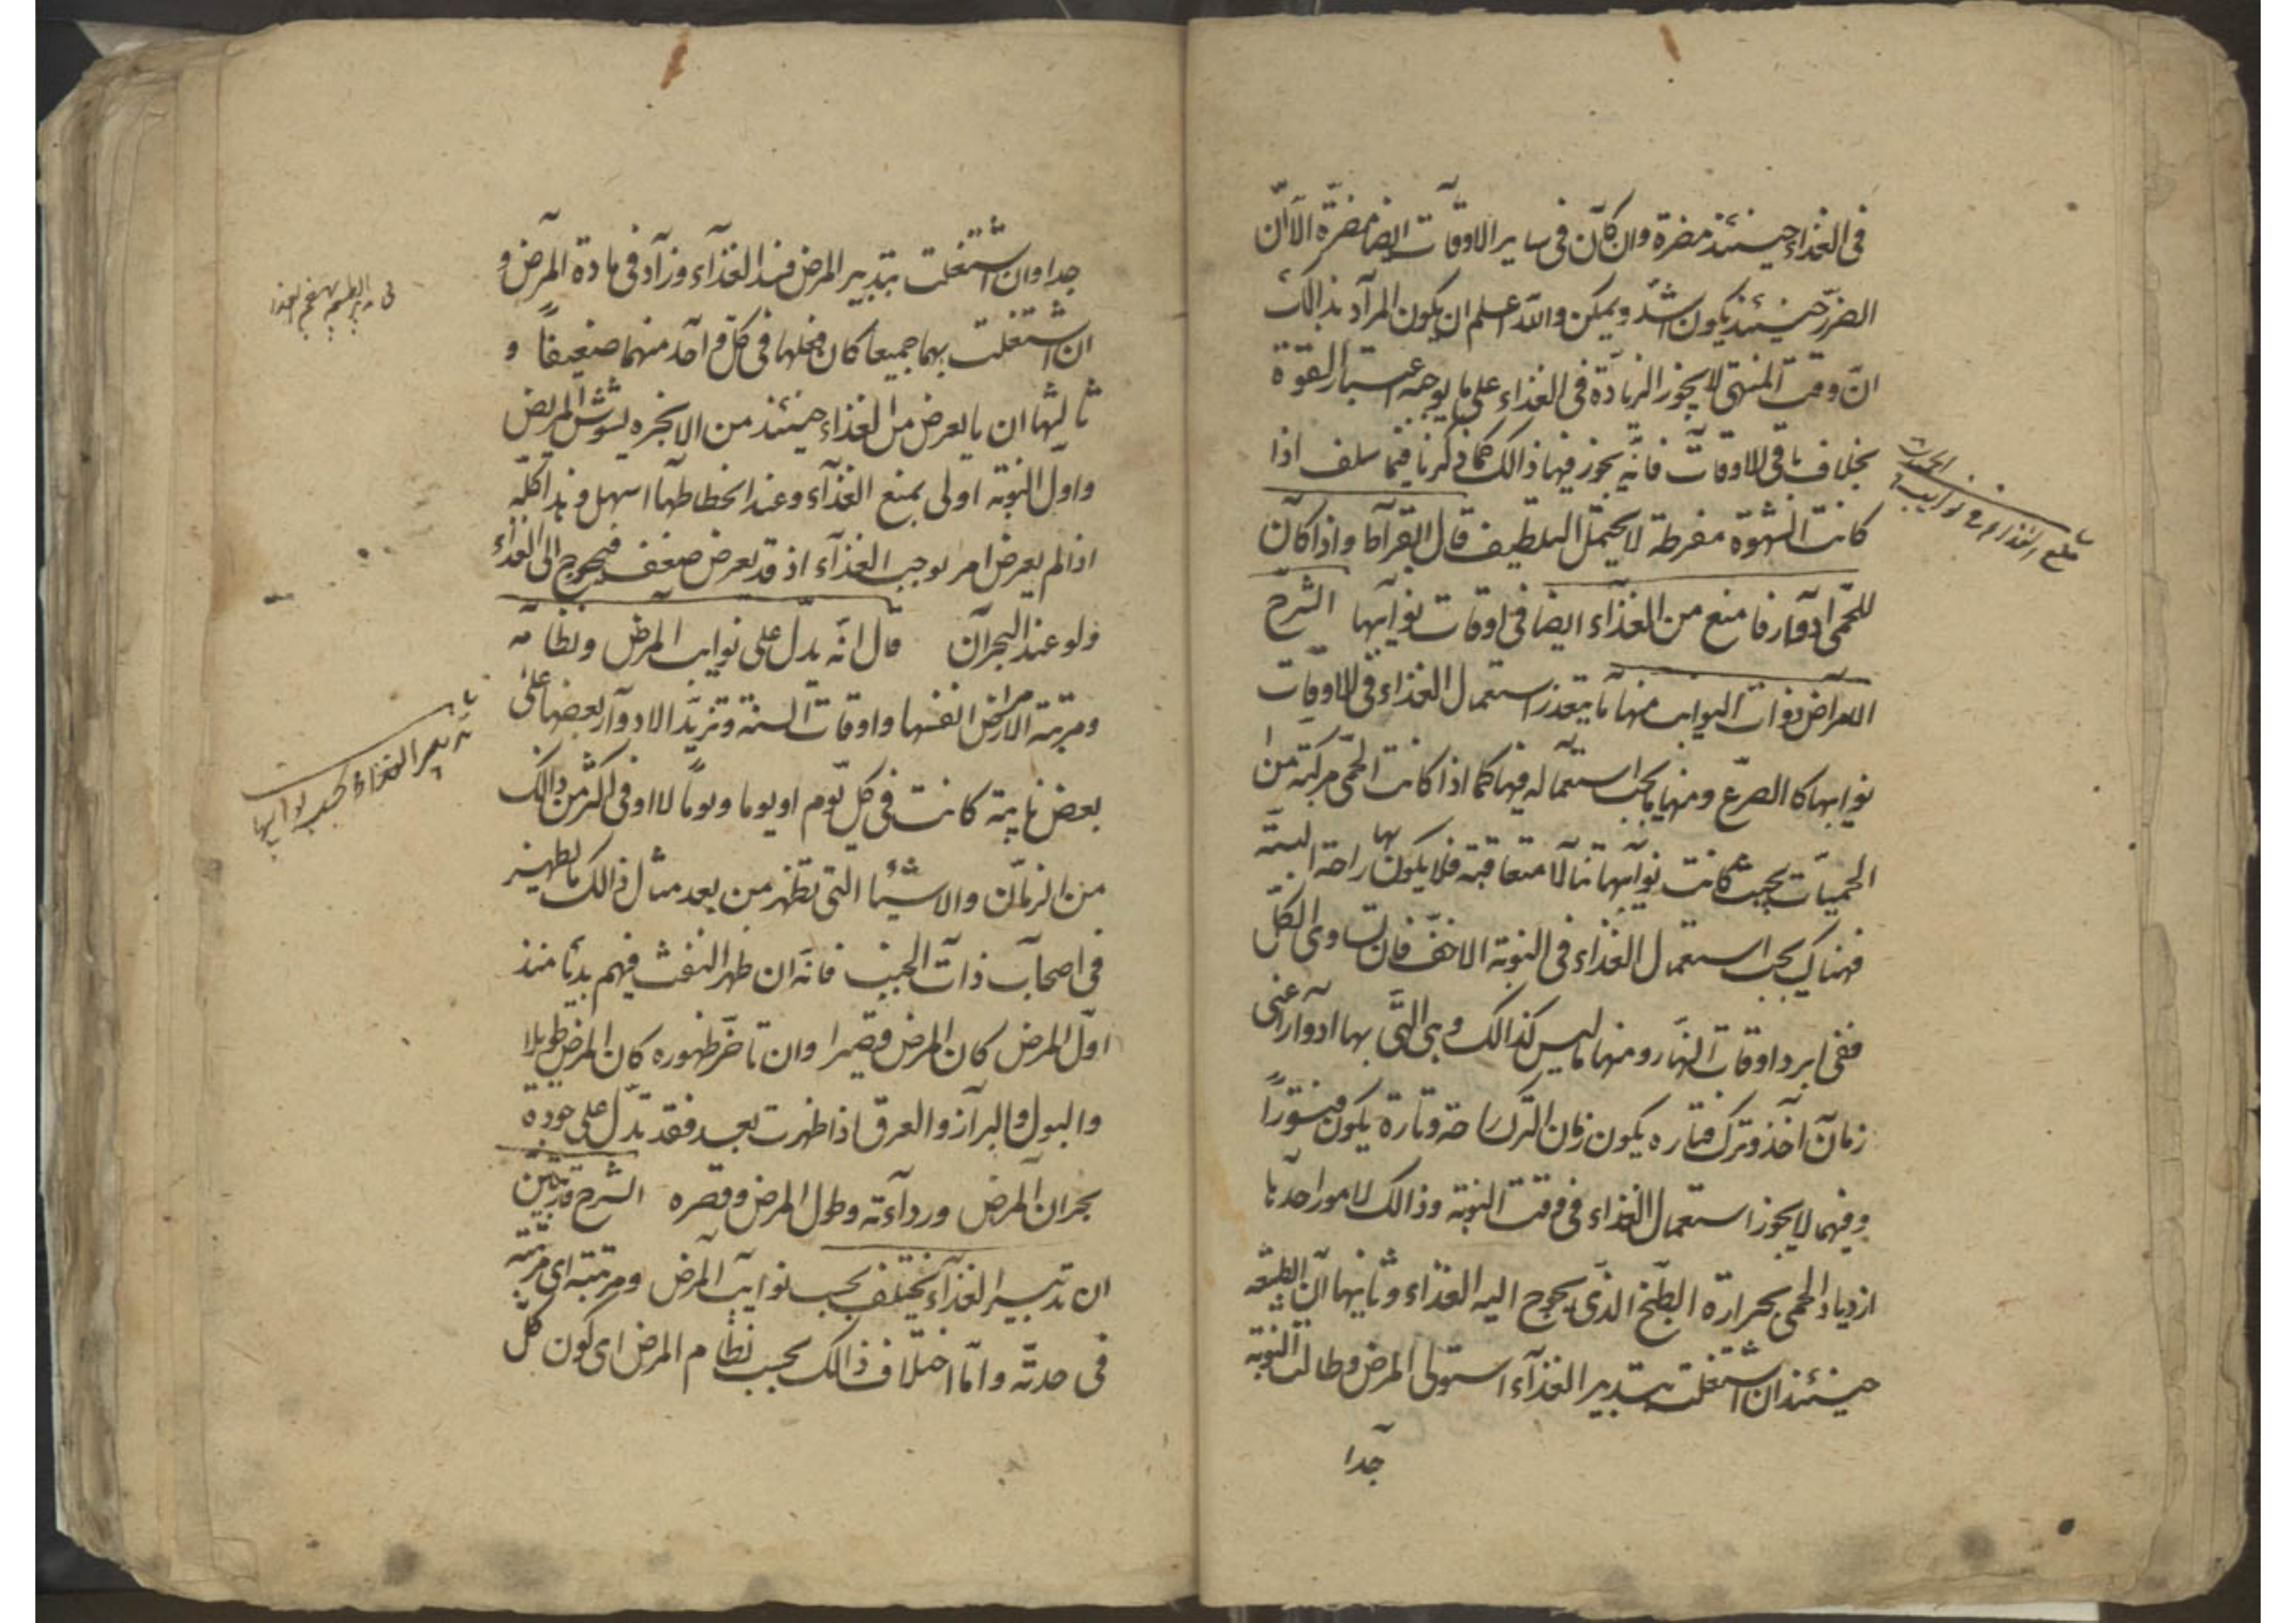 في الغذاء حينئذ مضرة وان كان في ساير الاوقات ايضا مضرة الا ان
الضرر حينئذ يكون اشد ويمكن والله اعلم ان يكون المراد بذالك
ان وقت المنتهى لا يجوز الزيادة في الغذاء على ما يوجبه اعتبار القوة
بخلاف باقي الاوقات فانه يجوز فيها ذالك كما ذكرنا فيما سلف اذا
كانت الشهوة مفرطة لا يحتمل التلطيف قال ابقراط واذا كان
للحمى ادوار فامنع من الغذاء ايضا في اوقات نوايبها الشرح
الامراض ذوات النوايب منها ما يتعذر استعمال الغذاء في الاوقات
نوايبها كالصرع ومنها ما يجب استعماله فيها كما اذا كانت الحمى مركبة من
الحميات بحيث كانت نوايبها متعاقبة فلا يكون بها راحة البتة
فهناك يجب استعمال الغذاء في النوبة الاخف فان تساوى الكل
ففي ابرد اوقات النهار ومنها ما ليس كذالك وهي التي بها ادوار اعني
زمان اخذ وترك فتاره يكون زمان الترك راحة وتارة يكون فتورا
وفيهما لا يجوز استعمال الغذاء في وقت النوبة وذالك لامور احدها
ازدياد الحمى بحرارة الطبخ الذي يحوج اليه الغذاء وثانيها ان الطبيعة
حينئذ ان اشتغلت بتدبير الغذاء استولى المرض وطالت النوبة
جدا
منع الغذاء في نوايب الحميات
جدا وان اشتغلت بتدبير المرض فسد الغذاء وزاد في مادة المرض و
ان اشتغلت بهما جميعا كان فعلها في كل واحد منهما ضعيفا و
ثالثها ان ما يعرض من الغذاء حينئذ من الابخره يشوش المريض
واول النوبة اولى بمنع الغذاء وعند انحطاطها اسهل وهذا كله
اذا لم يعرض امر يوجب الغذاء اذ قد يعرض ضعف فيحوج الى الغذاء
ولو عند البحران قال انه يدل على نوايب المرض ونظامه
ومرتبة الامراض انفسها واوقات السنة وتزيد الادوار بعضها على
بعض نايبة كانت في كل يوم او يوما ويوما لا او في اكثر من ذالك
من الزمان والاشيا التي تظهر من بعد مثال ذالك ما يظهر
في اصحاب ذات الجنب فانه ان ظهر النفث فيهم بديا منذ
اول المرض كان المرض قصيرا وان تاخر ظهوره كان المرض طويلا
والبول والبراز والعرق اذا ظهرت بعد فقد تدل على جودة
بحران المرض ورداءته وطول المرض وقصره الشرح قد تبين
ان تدبير الغذاء يختلف بحسب نوايب المرض ومرتبته اي مرتبته
في حدته واما اختلاف ذالك بحسب نظام المرض اي كون كل
تدبير الغذاء بحسب نوايبها